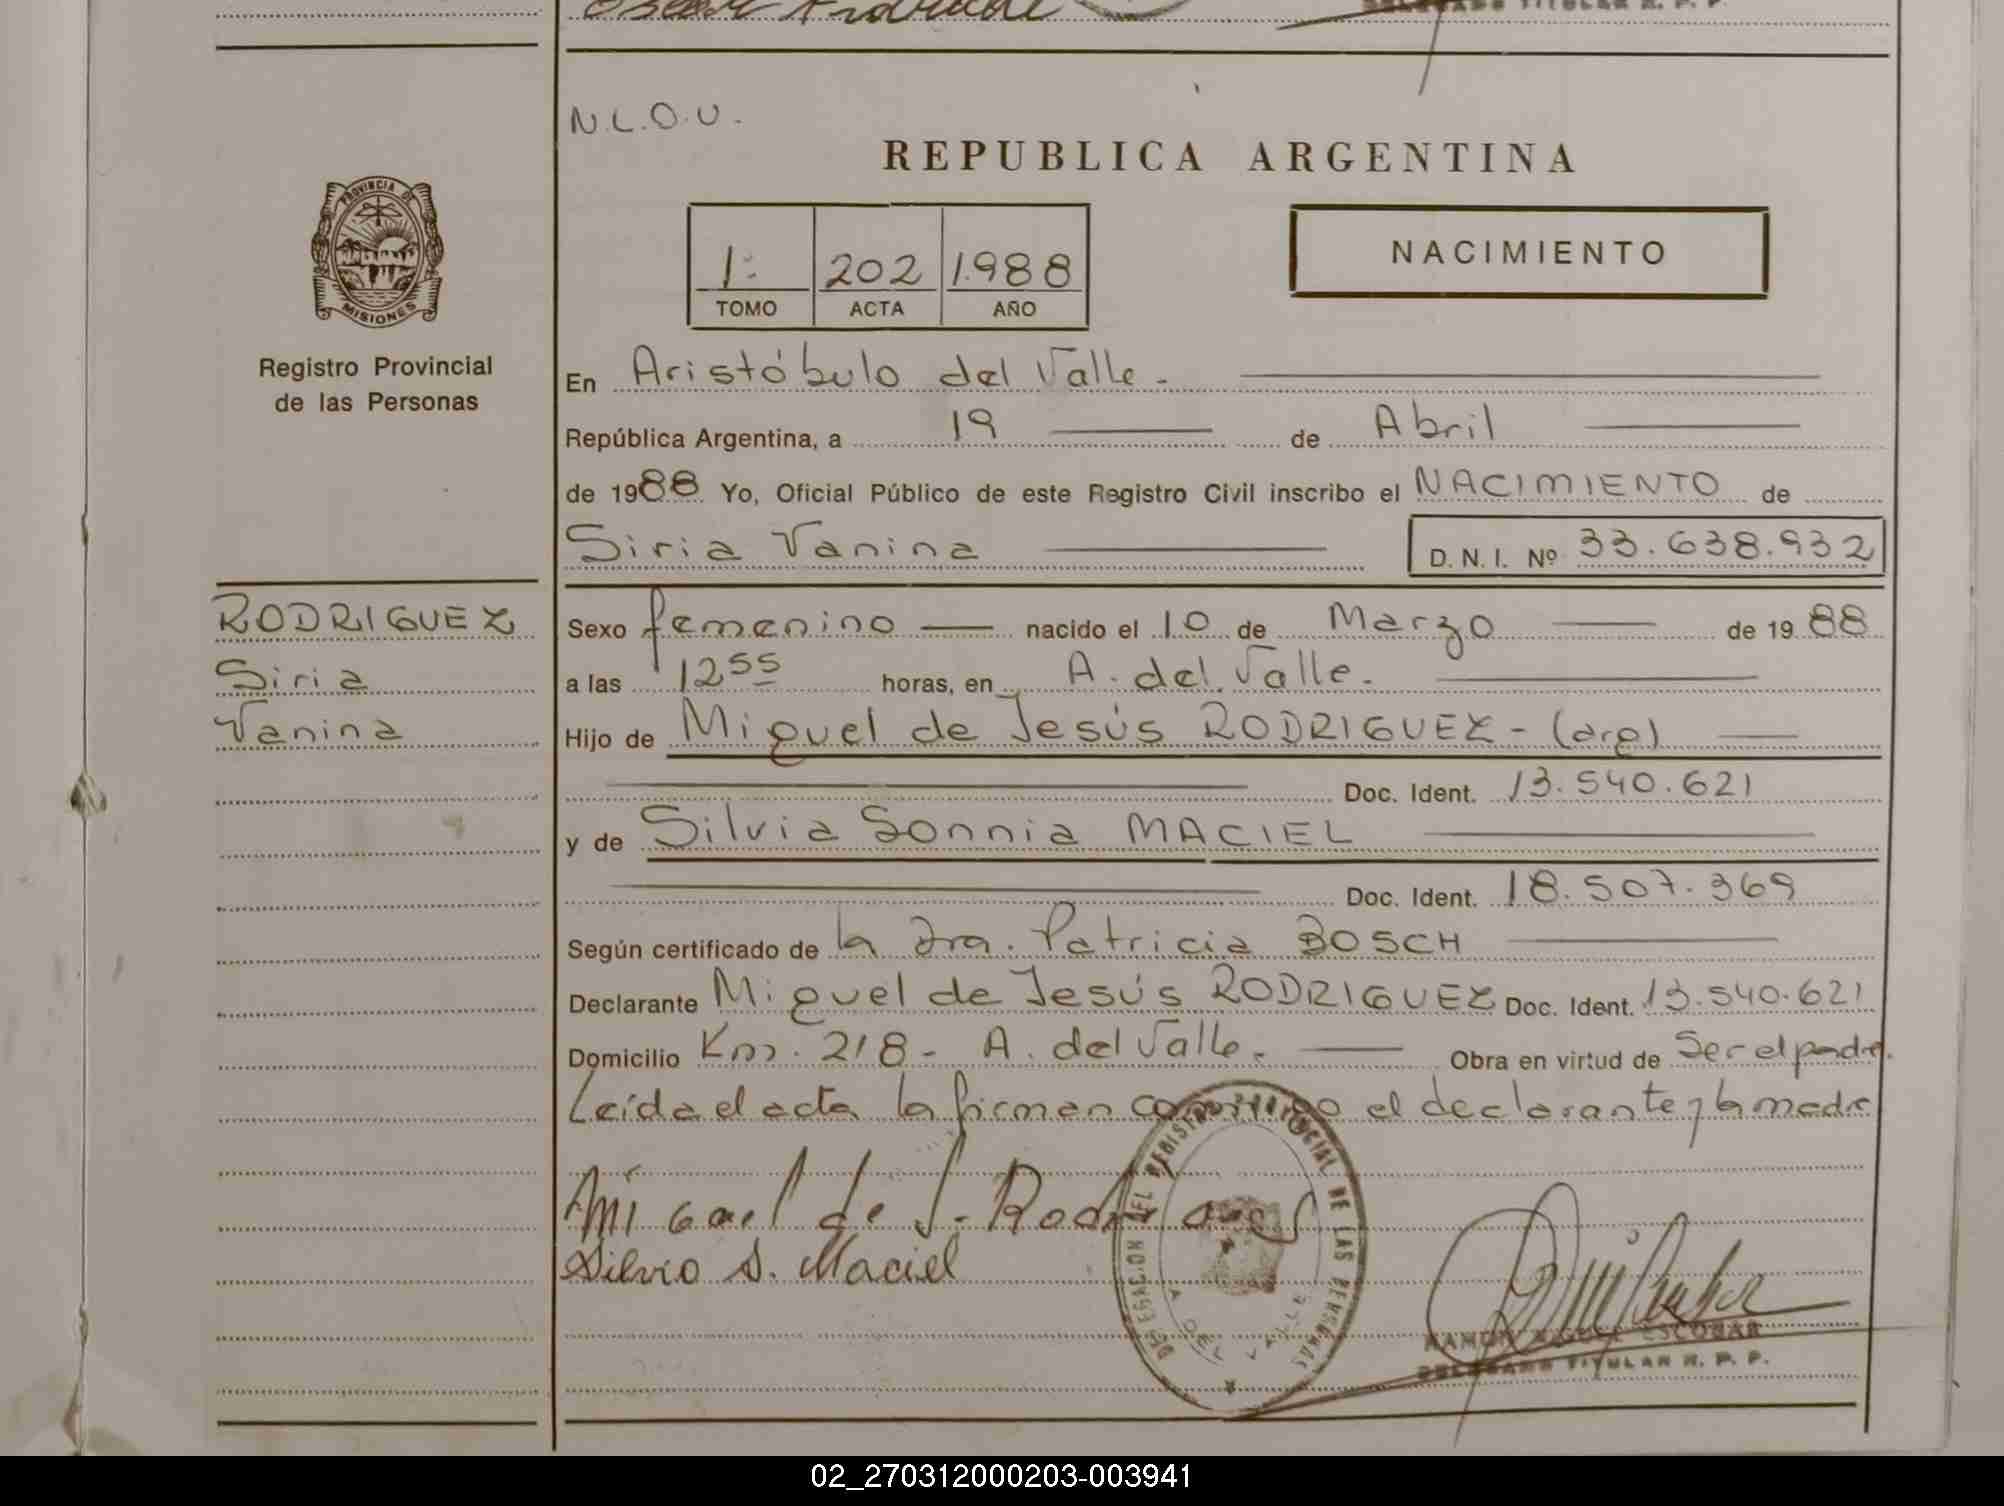 DELEGADO TITULAR R. P. P.
N.L.O.U.
REPUBLICA ARGENTINA
PROVINCIA DE
MISIONES
1º 202 1.988
TOMO ACTA AÑO
NACIMIENTO
Registro Provincial
de las Personas
En Aristóbulo del Valle.
República Argentina, a 19 de Abril
de 1988 Yo, Oficial Público de este Registro Civil inscribo el NACIMIENTO de
Siria Vanina D. N. I. Nº 33.638.932
RODRIGUEZ
Siria
Vanina
Sexo femenino nacido el 10 de Marzo de 1988
a las 12 55 horas, en A. del Valle.
Hijo de Miguel de Jesús RODRIGUEZ - (arg)
Doc. Ident. 13.540.621
y de Silvia Sonnia MACIEL
Doc. Ident. 18.507.369
Según certificado de la Dra. Patricia BOSCH
Declarante Miguel de Jesús RODRIGUEZ Doc. Ident. 13.540.621
Domicilio Km. 218 - A. del Valle. Obra en virtud de Ser el padre.
Leída el acta la firman conmigo el declarante y la madre
Miguel de J. Rodriguez
Silvia S. Maciel
DELEGACION DEL REGISTRO PROVINCIAL DE LAS PERSONAS
A. DEL VALLE
RAMON ESCOBAR
DELEGADO TITULAR R. P. P.
02_270312000203-003941